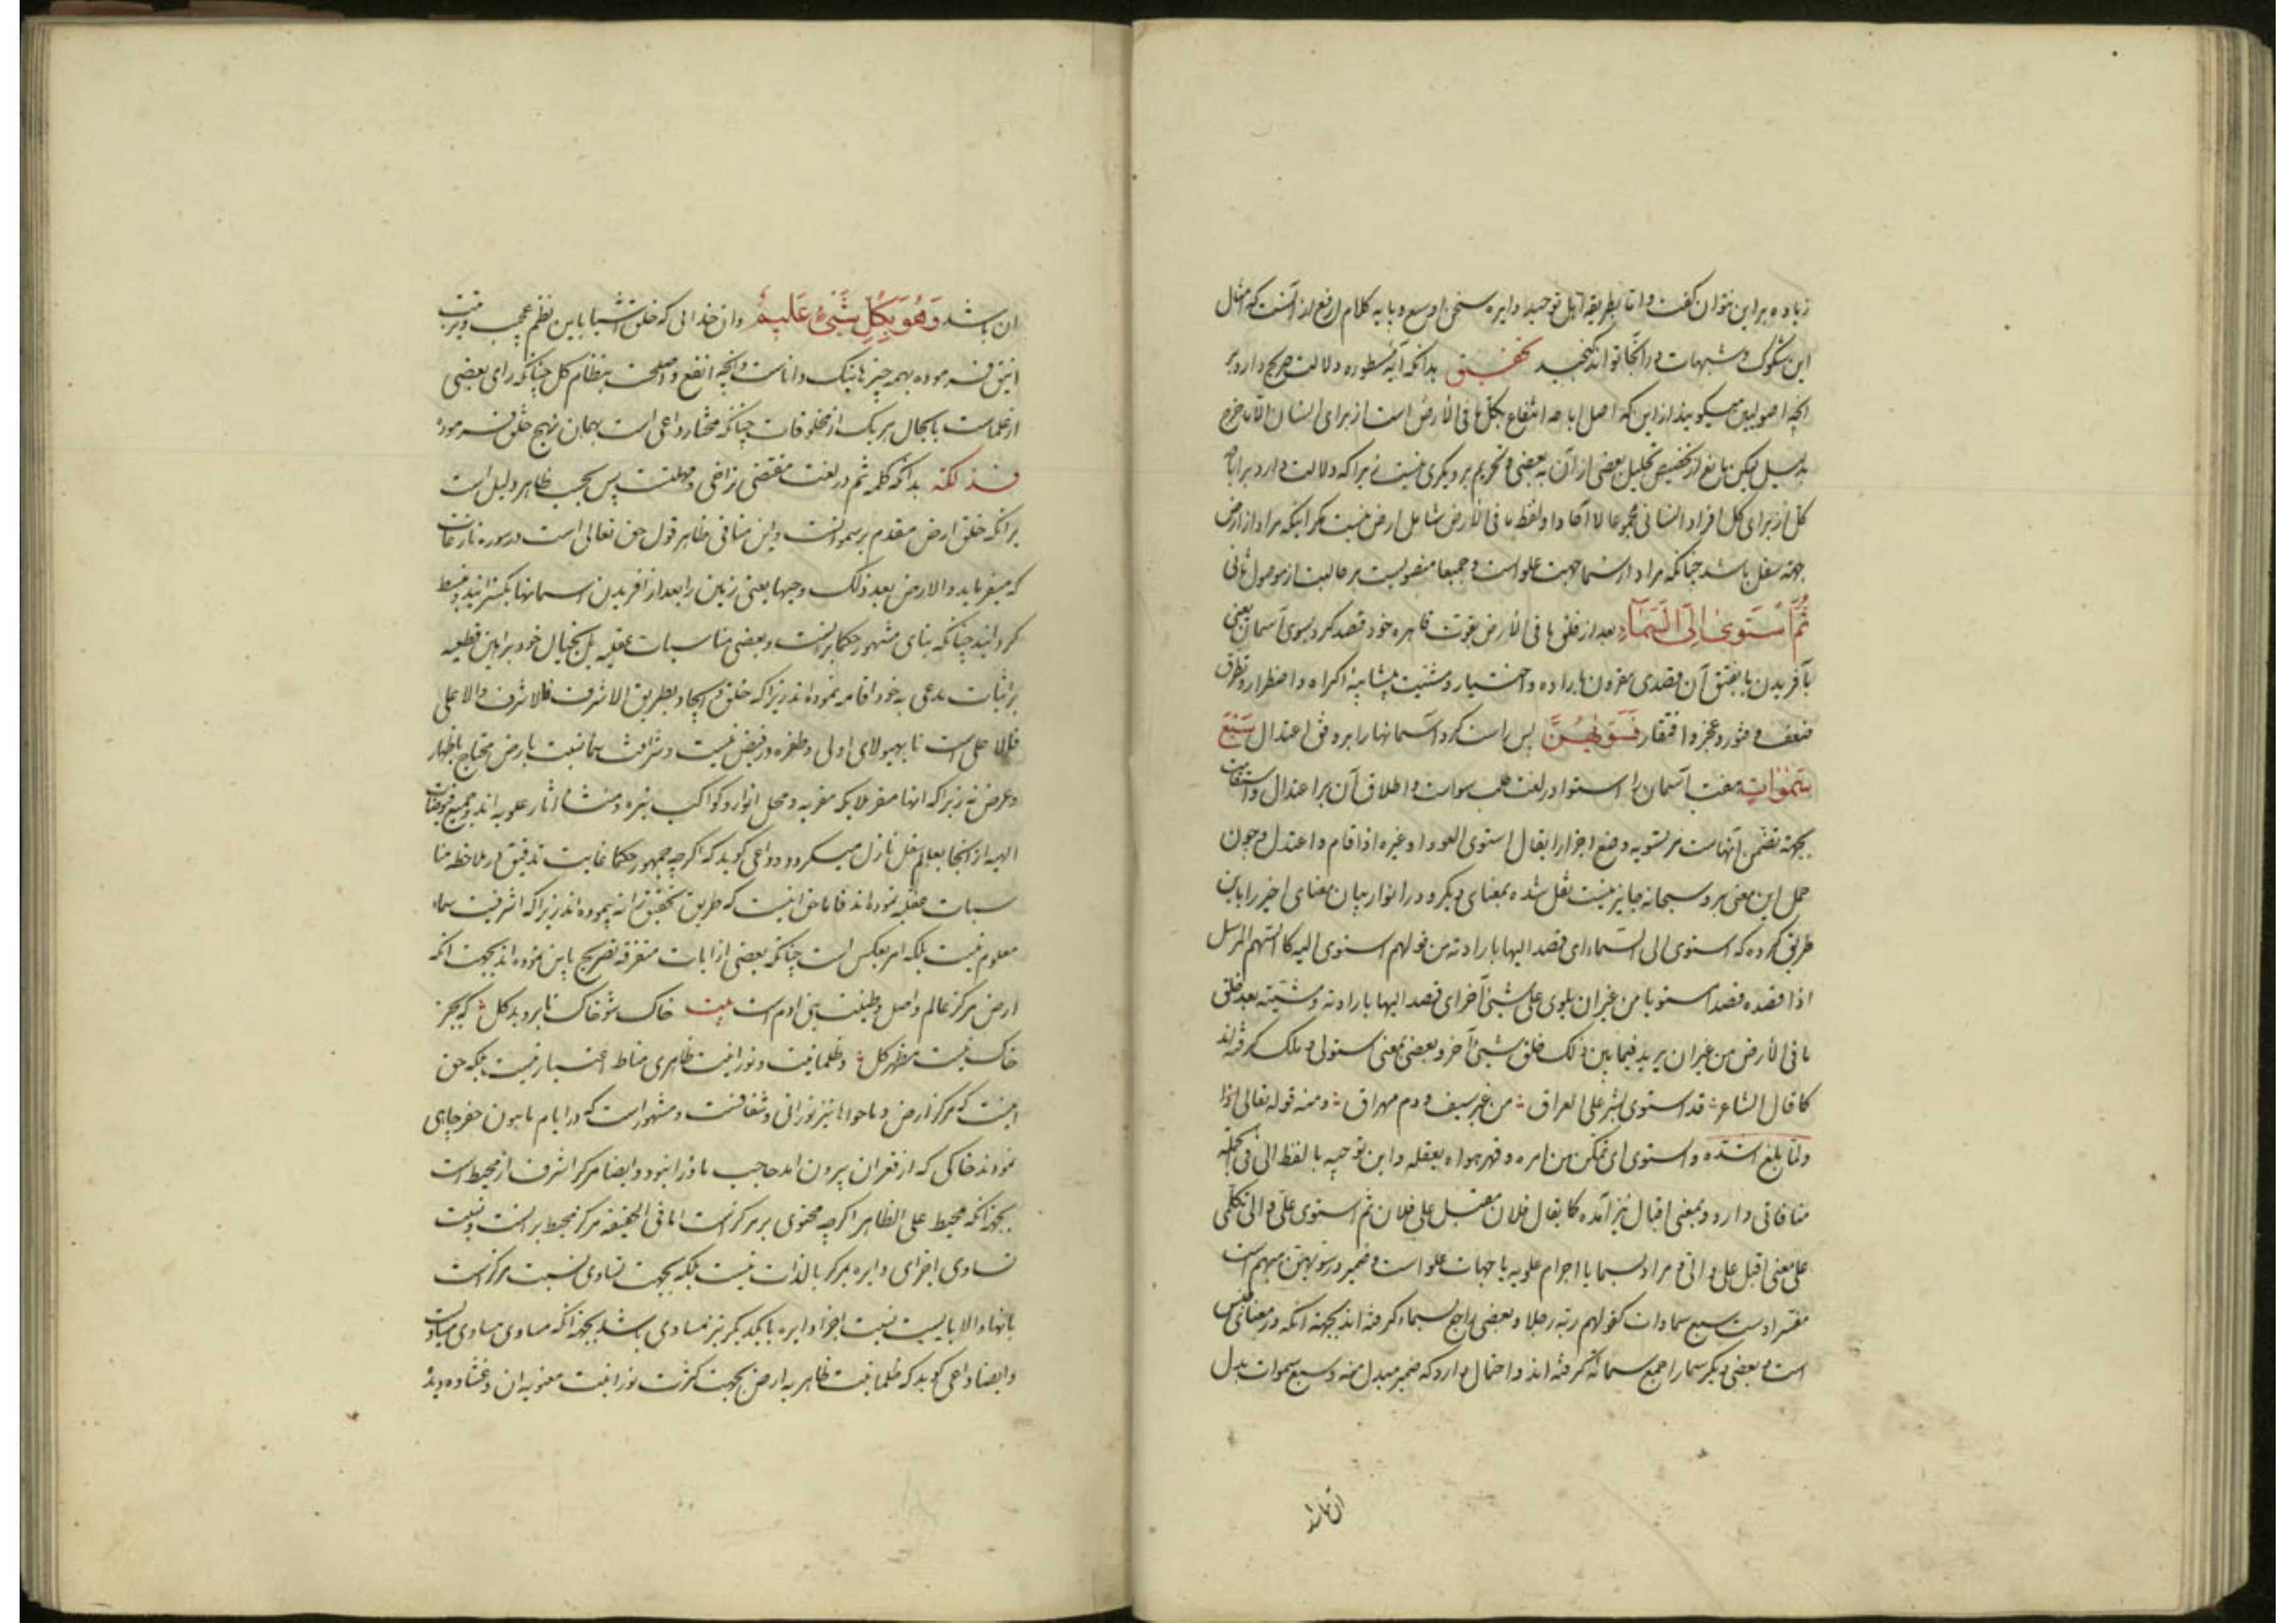 زیاده براین نتوان گفت و اما بطریقه اهل توحید دایره سخن اوسع و پایه کلام ارفع از آنست که امثال
این شکوک و شبهات در آنجا تواند گنجید تحقیق بدانکه آیه مسطوره دلالت صریح دارد بر
آنچه اصولیین میگویند از این که اصل اباحه انتفاع بکل ما فی الارض است از برای انسان الا ما خرج
بدلیل لیکن مانع از تخصیص تحلیل بعضی از آن به بعضی و تحریم بر دیگری نیست زیرا که دلالت دارد بر اباحه
کل از برای کل افراد انسانی مجموعا لا آحادا و لفظ ما فی الارض شامل ارض نیست مگر اینکه مراد از ارض
جهة سفل باشد چنانکه مراد از سما جهت علو است و جمیعا منصوبست بر حالیت از موصول ثانی
ثُمَّ اسْتَوىٰ اِلَى السَّمَاءِ بعد از خلق ما فی الارض بقوت قاهره خود قصد کرد بسوی آسمان یعنی
بآفریدن یا بفتق آن قصدی مقرون باراده و اختیار و مشیت بیشایبه اکراه و اضطرار و تطرق
ضعف و فتور و عجز و افتقار فَسَوّٰیهُنَّ پس راست کرد آسمانها را بر وفق اعتدال سَبْعَ
سَمٰوٰاتٍ هفت آسمان را استوا در لغت طلب سواست و اطلاق آن بر اعتدال و استقامت
بجهة تضمن آنهاست مر تسویه وضع اجزا را یقال استوی العود او غیره اذا قام و اعتدل و چون
حمل این معنی بر او سبحانه جایز نیست نقل شده بمعنای دیگر و در انوار بیان معنای اخیر را باین
طریق کرده که استوی الی السماء ای قصد الیها بارادته من قولهم استوی الیه کالسهم المرسل
اذا قصده قصدا مستویا من غیر ان یلوی علی شیئ آخر ای قصد الیها بارادته و مشیته بعد خلق
ما فی الارض من غیر ان یرید فیما بین ذلک خلق شیئ آخر و بعضی بمعنی استولی و ملک گرفته‌اند
کما قال الشاعر قد استوی بشر علی العراق من غیر سیف و دم مهراق و منه قوله تعالی
ولما بلغ اشده و استوی ای تمکن من امره و قهر هواه بعقله و این توجیه با لفظ الی فی الجمله
منافاتی دارد و بمعنی اقبال نیز آمده کما یقال فلان مقبل علی فلان ثم استوی علی و الی تکلمی
علی معنی اقبل علی و الی و مراد بسما یا اجرام علویه یا جهات علو است و ضمیر در سویهن مبهم است
مفسر اوست سبع سماوات کقولهم ربه رجلا و بعضی راجع بسماء گرفته اند بجهة آنکه در معنای جنس
است و بعضی دیگر سما را جمع سمائه گرفته اند و احتمال دارد که ضمیر مبدل منه و سبع سموات بدل
ان باشد
ان باشد وَهُوَ بِکُلِّ شَیْئٍ عَلیمٌ و ان خدائی که خلق اشیا باین نظم عجیب و ترتیب
انیق فرموده بهمه چیزها نیک داناست و آنچه انفع و اصلحت بنظام کل چنانکه رای بعضی
از علماست یا بحال هر یک از مخلوقات چنانکه مختار داعی است بهمان نهج خلق فرموده
فذلکه بدانکه کلمه ثم در لغت مقتضی تراخی و مهلتست پس بحسب ظاهر دلیل است
برانکه خلق ارض مقدم بر سمواتست و این منافی ظاهر قول حق تعالی است در سوره نازعات
که میفرماید والارض بعد ذلک دحیها یعنی زمین را بعد از افریدن اسمانها بگسترانید و منبسط
گردانید چنانکه بنای مشهور حکما برانست و بعضی مناسبات عقلیه بل بخیال خود براهین قطعیه
بر اثبات مدعی به خود اقامه نموده اند زیرا که خلق و ایجاد بطریق الاشرف فالاشرف والاعلی
فالاعلی است تا بهیولای اولی و طفره در فیض نیست و شرافت سما نسبت بارض محتاج باظهار
و عرض نه زیرا که انها مقر ملایکه مقربه و محل انوار و کواکب نیره و منشاء اثار علویه اند و جمیع فیوضات
الهیه از انجا بعالم سفل نازل میگردد و داعی گوید که اگرچه جمهور حکما غایت تدقیق در ملاحظه منا
سبات عقلیه نموده‌اند فاما حق اینست که طریق تحقیق را نه پیموده اند زیرا که اشرفیت سماء
معلوم نیست بلکه امر بعکس است چنانکه بعضی از ایات متفرقه تصریح باین نموده اند بجهت انکه
ارض مرکز عالم و اصل و طینت بنی ادم است بیت خاک شو خاک تا بروید کل که بجز
خاک نیست مظهر کل و ظلمانیت و نورانیت ظاهری مناط اعتبار نیست بلکه حق
اینست که مرکز ارض و ماحولها نیز نورانی و شفافست و مشهور است که در ایام مامون حفر چاهی
نمودند خاکی که از قعر ان بیرون امد حاجب ماورا نبود و ایضا مرکز اشرف از محیط است
بجهة انکه محیط علی الظاهر اگرچه محتوی بر مرکز است اما فی الحقیقه مرکز محیط بر انست و نسبت
تساوی اجزای دایره بمرکز بالذات نیست بلکه بجهت تساوی نسبت مرکز است
بانها و الا بایست نسبت اجزا دایره با یکدیگر نیز تساوی باشد بجهة انکه مساوی مساوی مساویست
و ایضا داعی گوید که ظلمانیت ظاهریه ارض بجهت کثرت نورانیت معنویه ان و غشاوه دیده